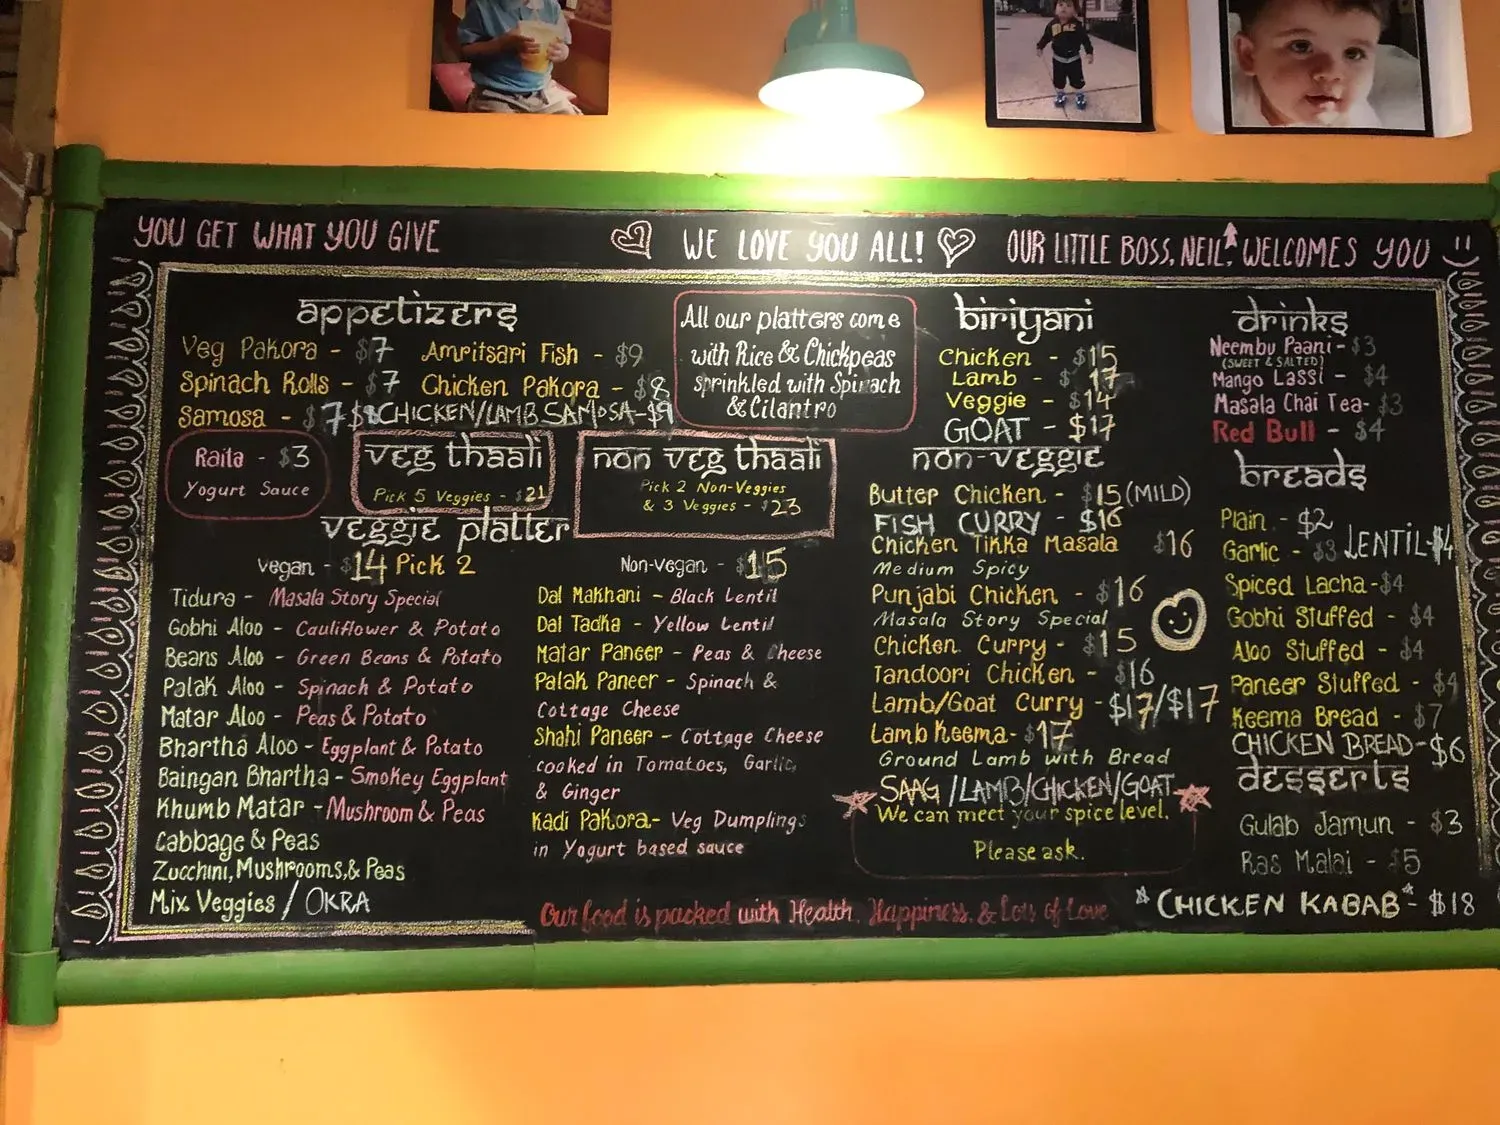 YOU GET WHAT YOU GIVE
WE LOVE YOU ALL!
OUR LITTLE BOSS, NEIL, WELCOMES YOU
appetizers
Veg Pakora - $7
Amritsari Fish - $9
Spinach Rolls - $7
Chicken Pakora - $8
Samosa - $7
CHICKEN/LAMB SAMOSA-$9
Raita - $3
Yogurt Sauce
veg thaali
Pick 5 Veggies - $21
non veg thaali
Pick 2 Non-Veggies
& 3 Veggies - $23
All our platters come
with Rice & Chickpeas
sprinkled with Spinach
& Cilantro
veggie platter
Vegan - $14 Pick 2
Tidura - Masala Story Special
Gobhi Aloo - Cauliflower & Potato
Beans Aloo - Green Beans & Potato
Palak Aloo - Spinach & Potato
Matar Aloo - Peas & Potato
Bhartha Aloo - Eggplant & Potato
Baingan Bhartha - Smokey Eggplant
Khumb Matar - Mushroom & Peas
Cabbage & Peas
Zucchini, Mushrooms, & Peas
Mix Veggies / OKRA
Non-Vegan - $15
Dal Makhani - Black Lentil
Dal Tadka - Yellow Lentil
Matar Paneer - Peas & Cheese
Palak Paneer - Spinach &
Cottage Cheese
Shahi Paneer - Cottage Cheese
cooked in Tomatoes, Garlic,
& Ginger
Kadi Pakora - Veg Dumplings
in Yogurt based sauce
biriyani
Chicken - $15
Lamb - $17
Veggie - $14
GOAT - $17
non-veggie
Butter Chicken - $15 (MILD)
FISH CURRY - $16
Chicken Tikka Masala $16
Medium Spicy
Punjabi Chicken - $16
Masala Story Special
Chicken Curry - $15
Tandoori Chicken - $16
Lamb/Goat Curry - $17/$17
Lamb Keema - $17
Ground Lamb with Bread
SAAG /LAMB/CHICKEN/GOAT
We can meet your spice level.
Please ask.
drinks
Neembu Paani - $3
(SWEET & SALTED)
Mango Lassi - $4
Masala Chai Tea - $3
Red Bull - $4
breads
Plain - $2
Garlic - $3
LENTIL-$4
Spiced Lacha - $4
Gobhi Stuffed - $4
Aloo Stuffed - $4
Paneer Stuffed - $4
Keema Bread - $7
CHICKEN BREAD-$6
desserts
Gulab Jamun - $3
Ras Malai - $5
CHICKEN KABAB - $18
Our food is packed with Health, Happiness, & Lots of Love